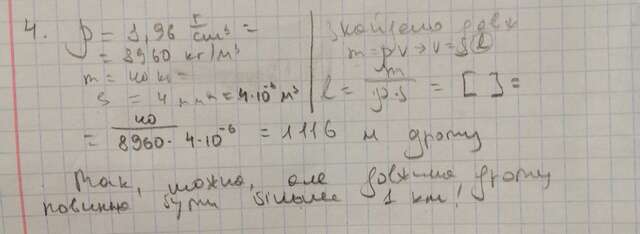 4. ρ = 8,96 г/cm³ =
= 8960 кг/м³
m = 40 кг
s = 4 мм² = 4·10⁻⁶ м²
Знайдемо довж
m = ρv → v = Sl
l = m/ρ·s = [ ] =
= 40/8960·4·10⁻⁶ = 1116 м дроту
Так, можна, але довжина дроту
повинна бути більше 1 км.